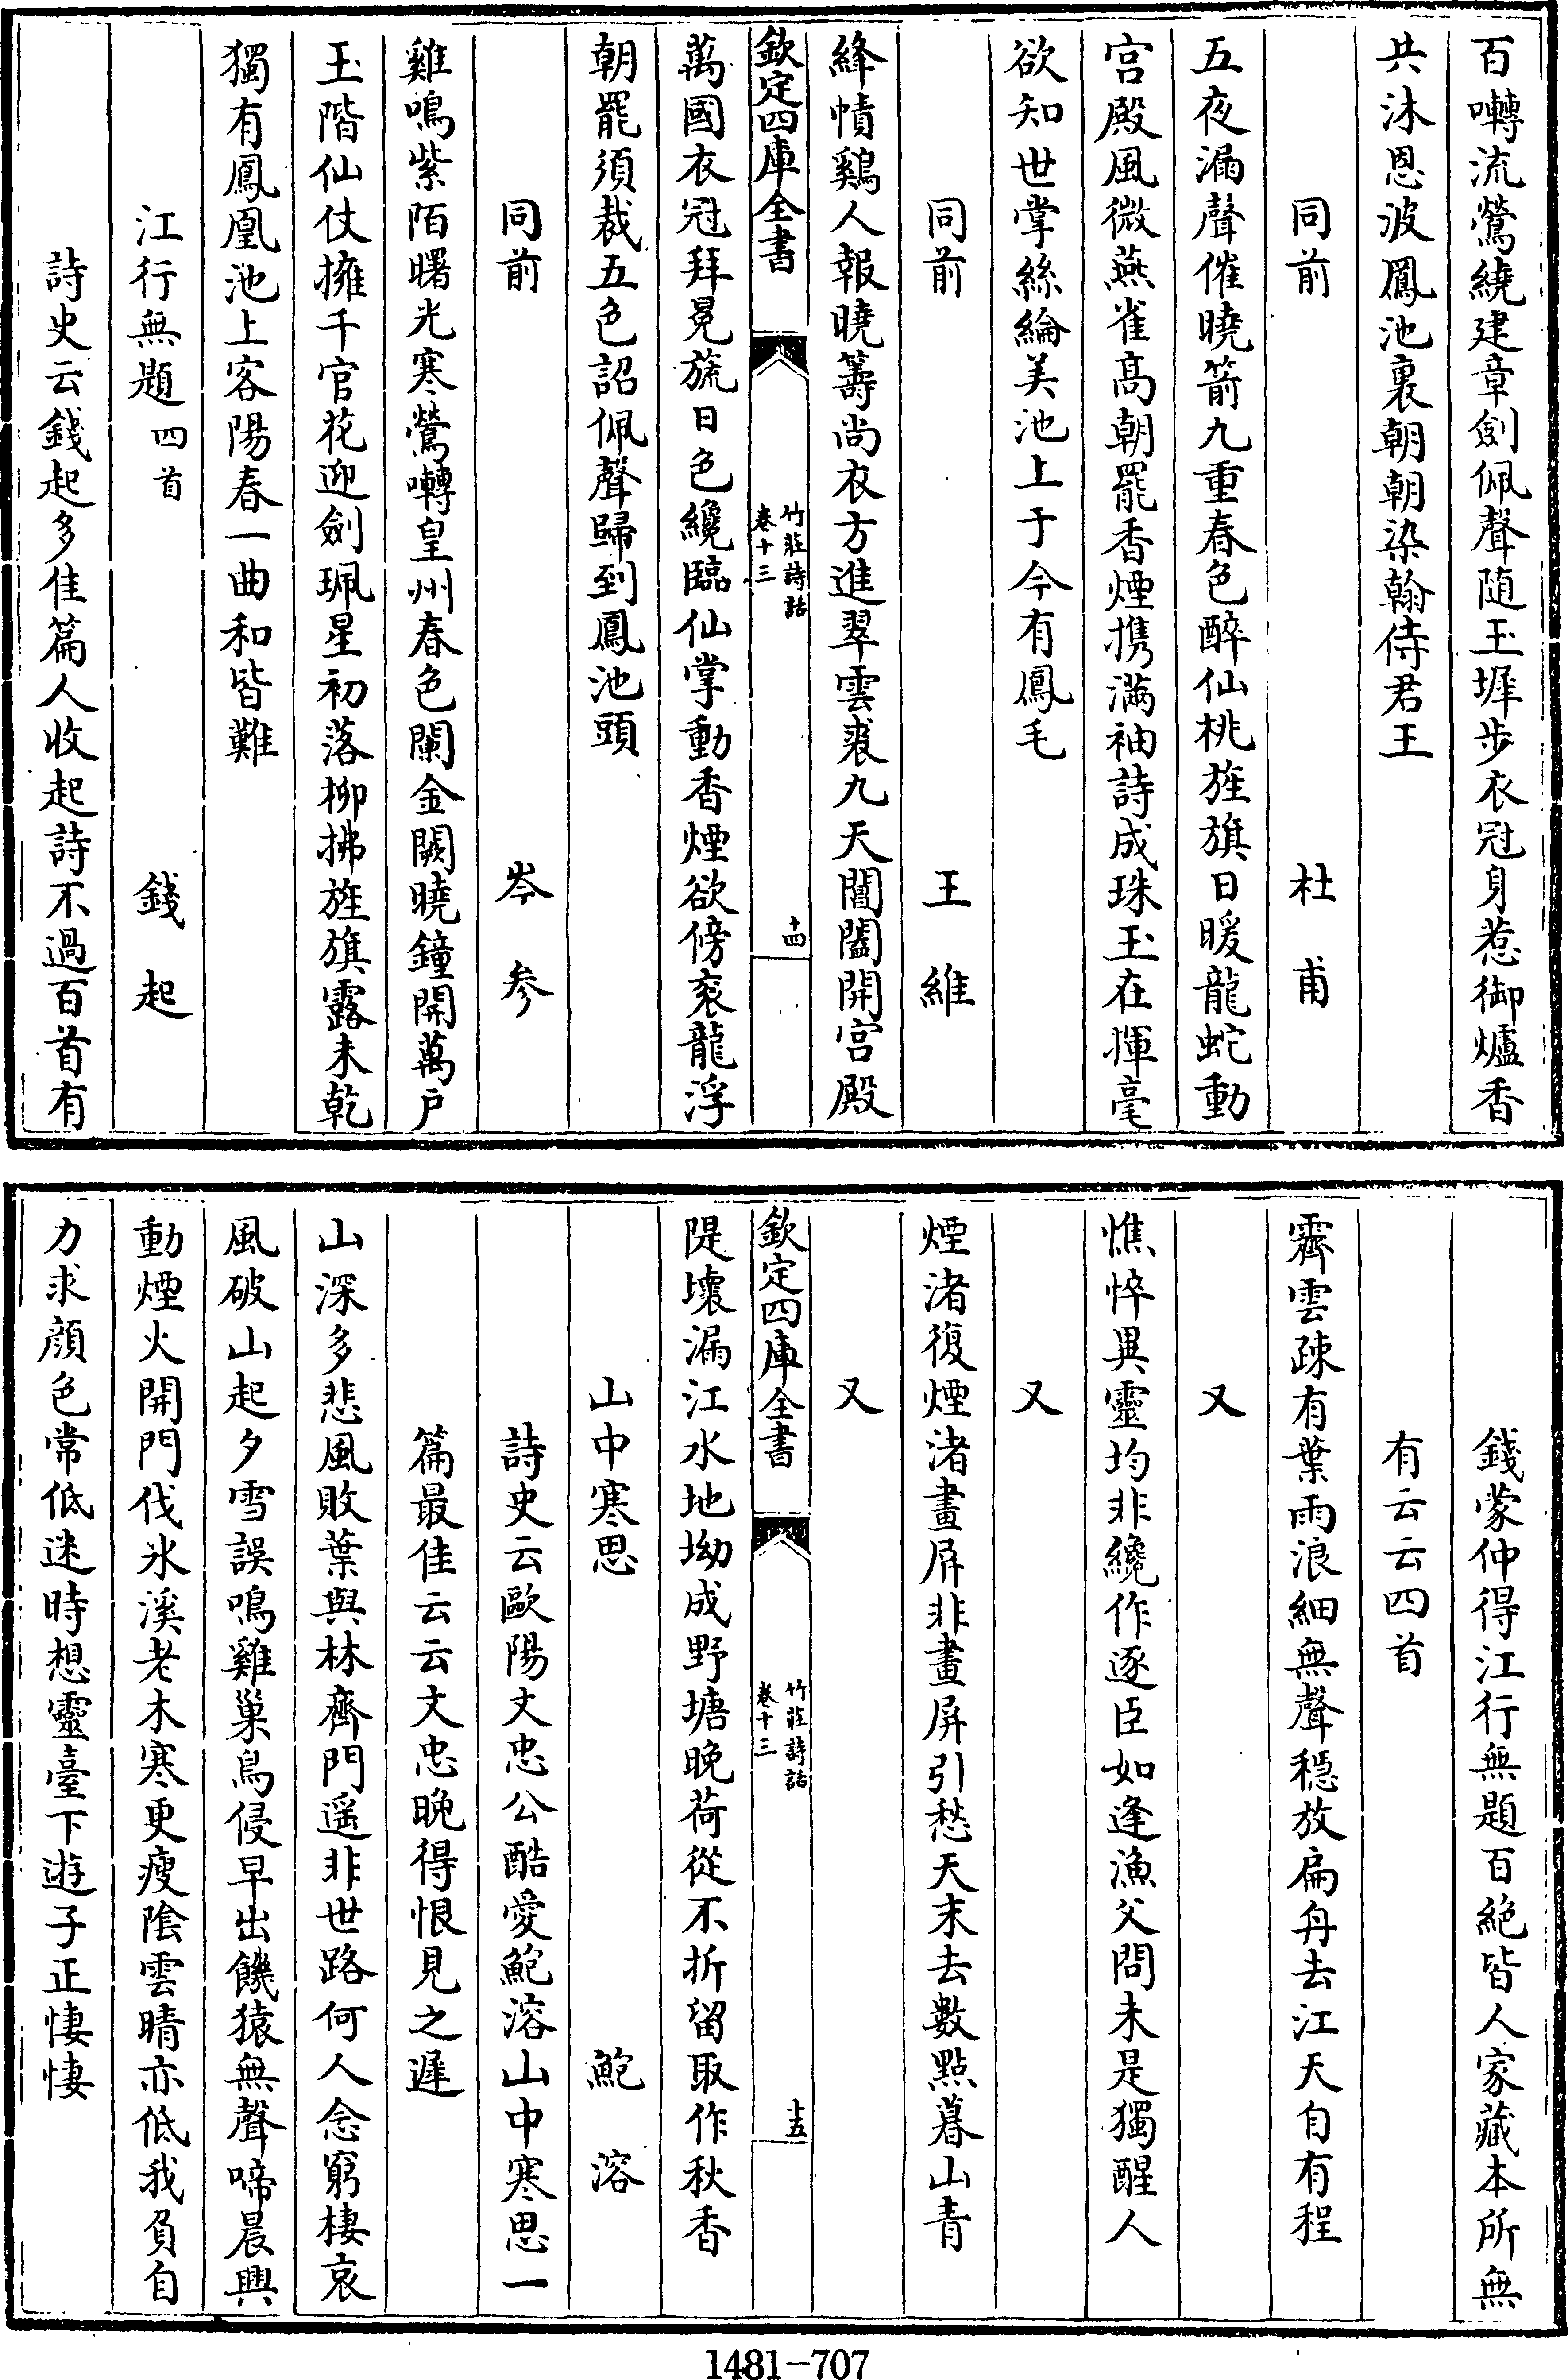 百囀流鶯繞建章劍佩聲随玉墀步衣冠身惹御爐香
共沐恩波鳳池裏朝朝染翰侍君王
同前 杜甫
五夜漏聲催曉箭九重春色醉仙桃旌旗日暖龍蛇動
宫殿風微燕雀髙朝罷香煙携滿袖詩成珠玉在揮毫
欲知世掌絲綸美池上于今有鳳毛
同前 王維
絳幘鷄人報曉籌尚衣方進翠雲裘九天閶闔開宫殿
欽定四庫全書 竹莊詩話 卷十三 十四
萬國衣冠拜冕旒日色纔臨仙掌動香煙欲傍衮龍浮
朝罷須裁五色詔佩聲歸到鳳池頭
同前 岑參
雞鳴紫陌曙光寒鶯囀皇州春色闌金闕曉鐘開萬戸
玉階仙仗擁千官花迎劍珮星初落柳拂旌旗露未乾
獨有鳳凰池上客陽春一曲和皆難
江行無題四首 錢起
詩史云錢起多佳篇人收起詩不過百首有
錢蒙仲得江行無題百絶皆人家藏本所無
有云云四首
霽雲疎有葉雨浪細無聲穏放扁舟去江天自有程
又
憔悴異靈均非纔作逐臣如逢漁父問未是獨醒人
又
煙渚復煙渚畫屏非畫屏引愁天末去數點暮山青
又
欽定四庫全書 竹莊詩話 卷十三 十五
隄壞漏江水地坳成野塘晚荷從不折留取作秋香
山中寒思 鮑溶
詩史云歐陽文忠公酷愛鮑溶山中寒思一
篇最佳云云文忠晚得恨見之遲
山深多悲風敗葉與林齊門遥非世路何人念窮棲哀
風破山起夕雪誤鳴雞巢鳥侵早出饑猿無聲啼晨興
動煙火開門伐氷溪老木寒更瘦陰雲晴亦低我負自
力求顔色常低迷時想靈臺下遊子正悽悽
1481-707